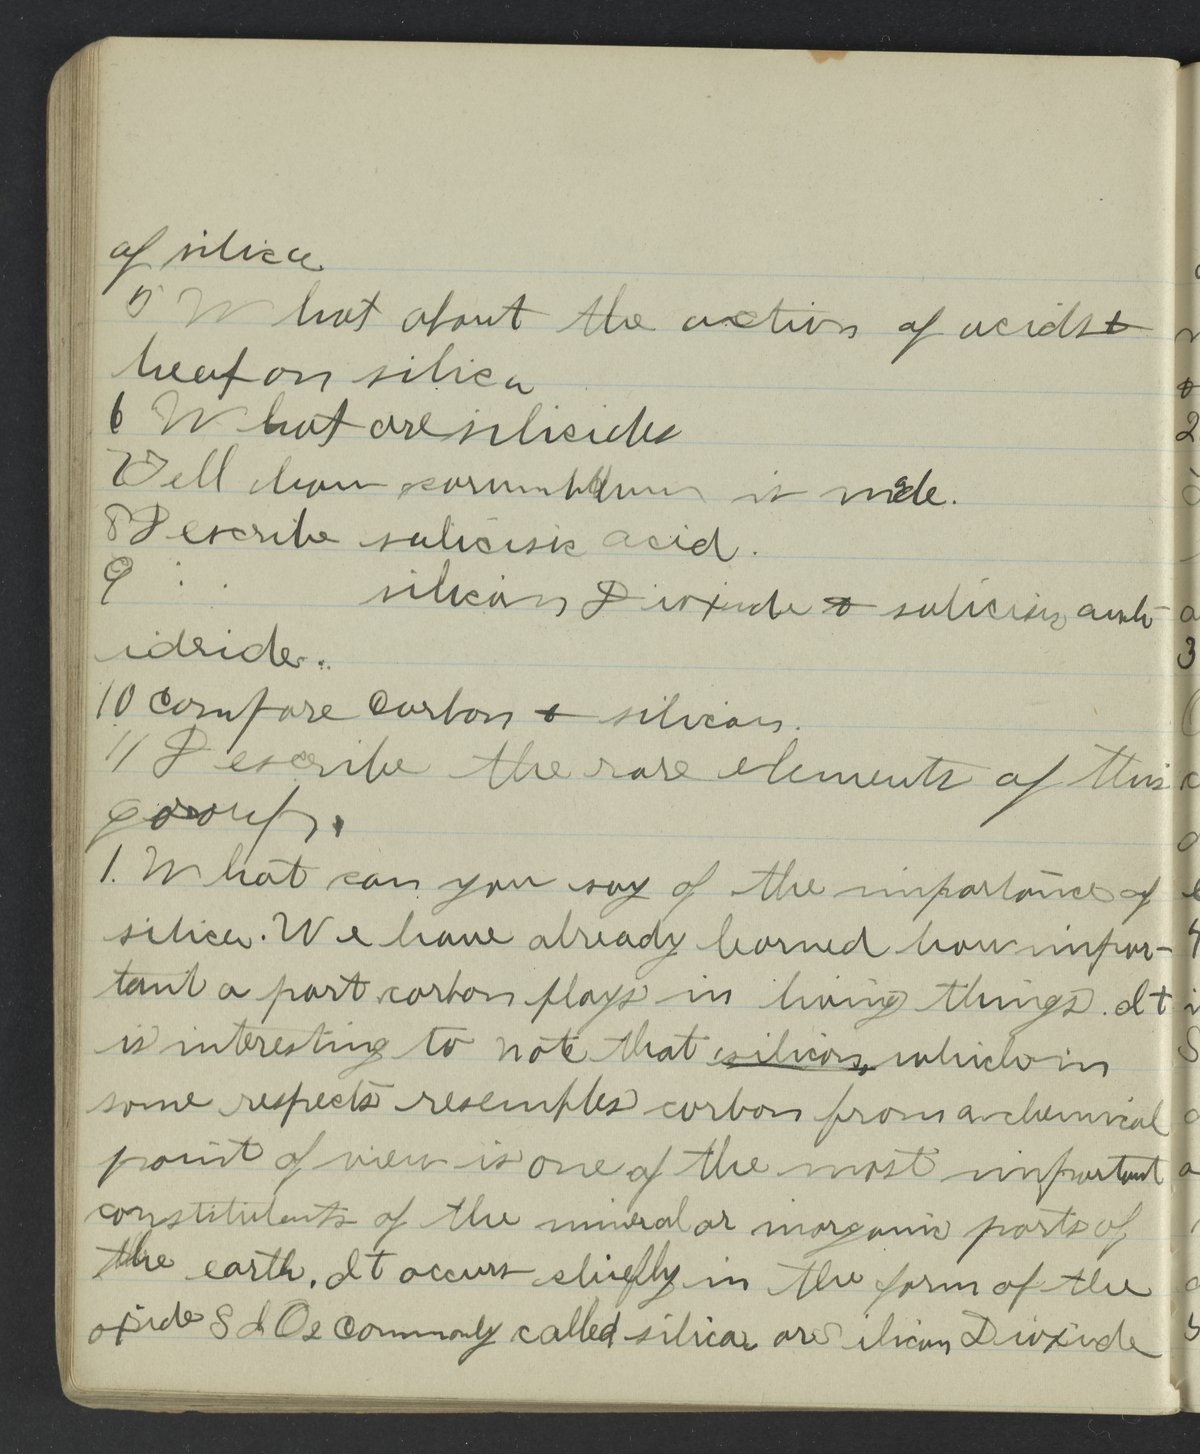 of silica
5 What about the action of acids &
heat on silica
6 What are silicides
7 Tell how corumdum is made.
8 Describe salicisic acid.
9 " " silicon Dioxide & salicisic anh-
idride.
10 Compare Carbon & silicon.
11 Describe the rare elements of this
group.
1. What can you say of the importance of
silica. We have already learned how impor-
tant a part carbon plays in living things. It
is interesting to note that silicon, which in
some respects resembles carbon from a chemical
point of view is one of the most important
constituents of the mineral or inorganic parts of
the earth. It occurs chiefly in the form of the
oxide SiO2 Commonly called silica, or silicon Dioxide